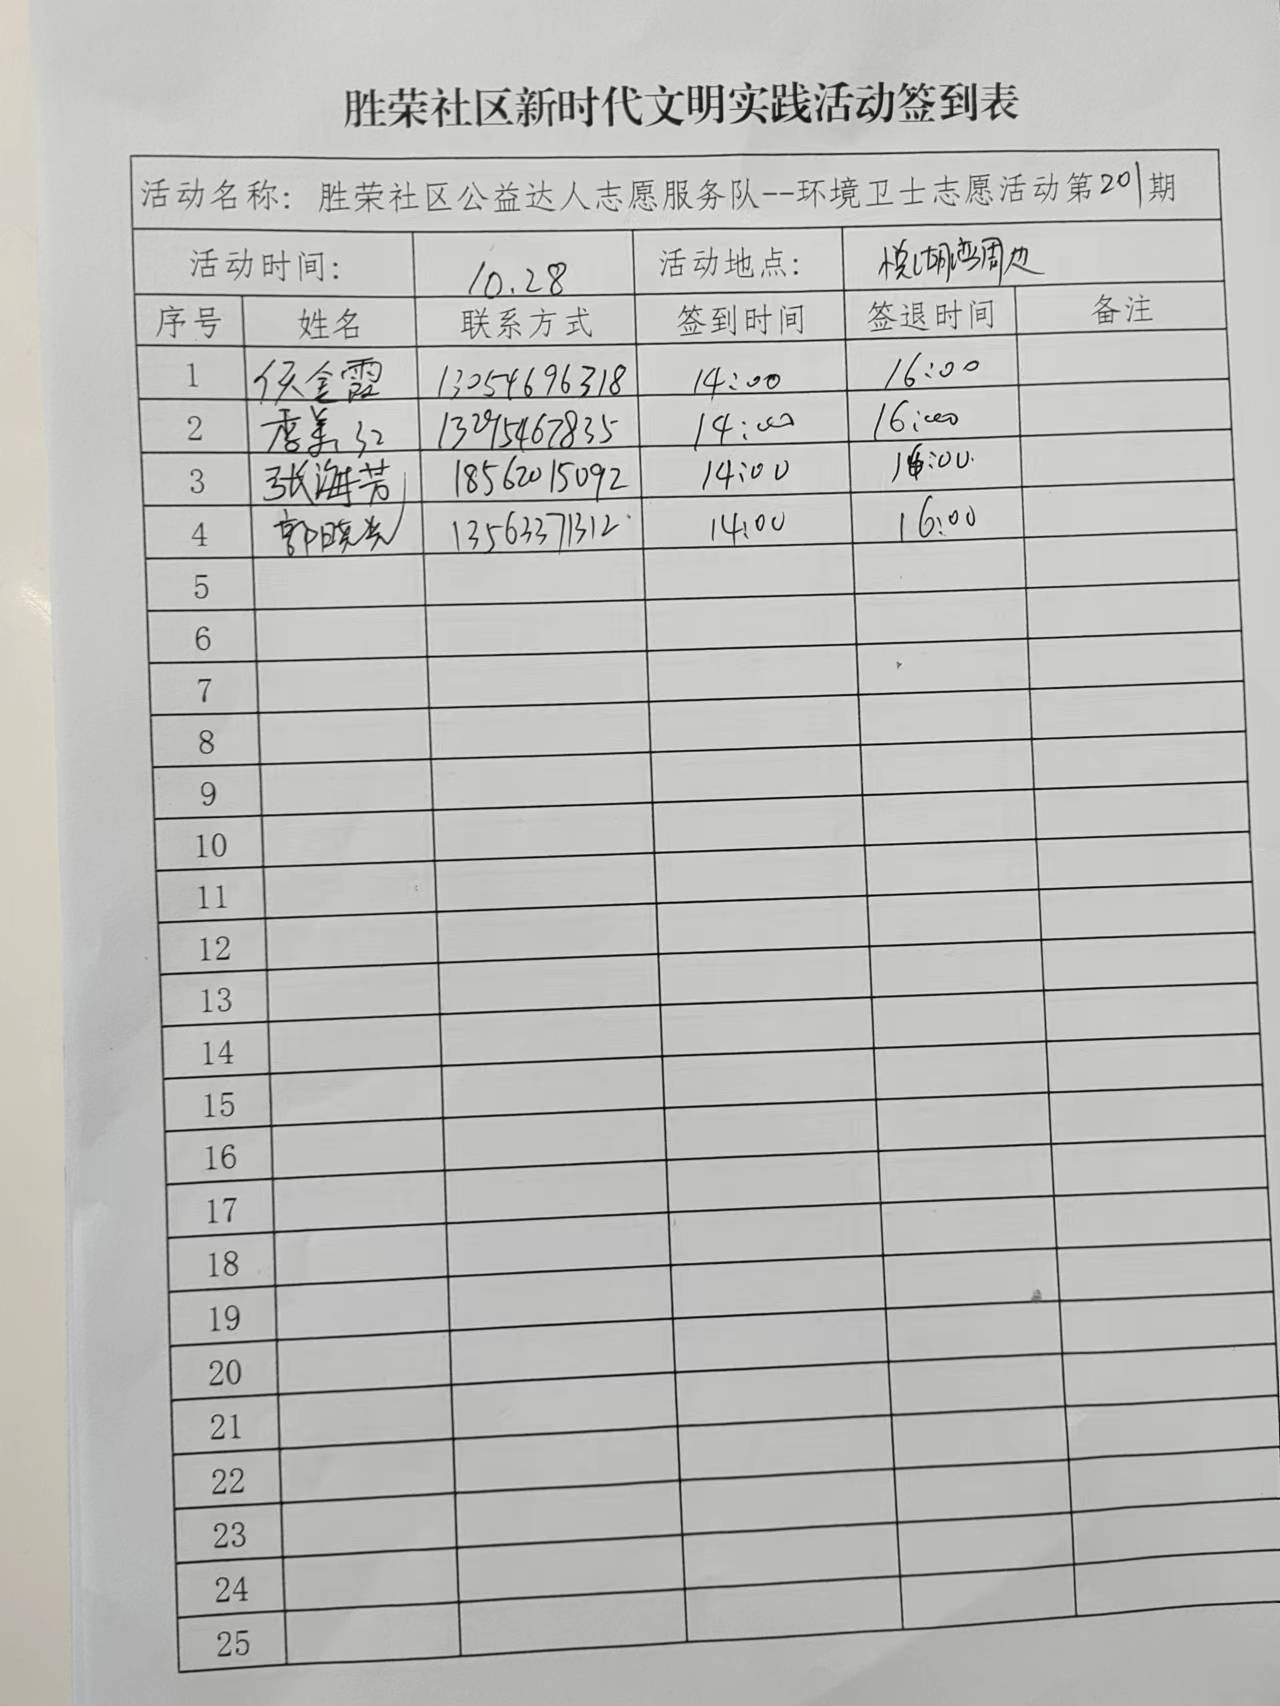 胜荣社区新时代文明实践活动签到表
活动名称：胜荣社区公益达人志愿服务队--环境卫士志愿活动第201期
活动时间： 10.28 活动地点： 悦湖湾周边
序号 姓名 联系方式 签到时间 签退时间 备注
1 侯金霞 13054696318 14:00 16:00
2 李美江 13295467835 14:00 16:00
3 张海芳 18562015092 14:00 16:00
4 郭晓 13563371312 14:00 16:00
5
6
7
8
9
10
11
12
13
14
15
16
17
18
19
20
21
22
23
24
25